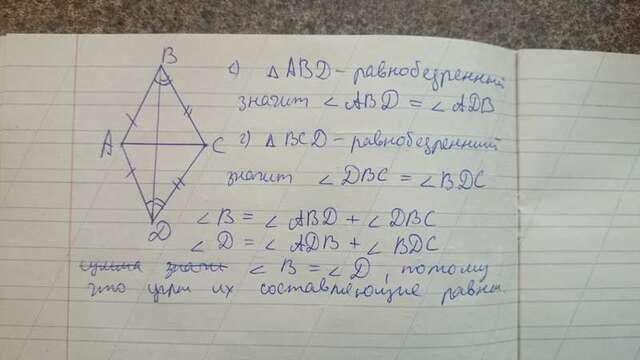 1) △ABD - равнобедренний
значит ∠ABD = ∠ADB
2) △BCD - равнобедренний
значит ∠DBC = ∠BDC
A
B
C
D
∠B = ∠ABD + ∠DBC
∠D = ∠ADB + ∠BDC
∠B = ∠D, потому
что угли их составляющие равны.